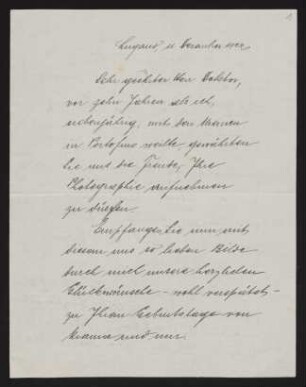 Lugano, 11 Dezember 1922,
Sehr geehrter Herr Doktor,
vor zehn Jahren als ich,
siebenjährig, mit den Mamma
in Portofino weilte gewährten
Sie uns die Freude, Ihre
Photographie aufnehmen
zu dürfen.
Empfangen Sie nun mit
diesem uns so lieben Bilde
durch mich unsere herzlichen
Glückwünsche – wohl verspätet –
zu Ihrem Geburtstage von
Mamma und mir.